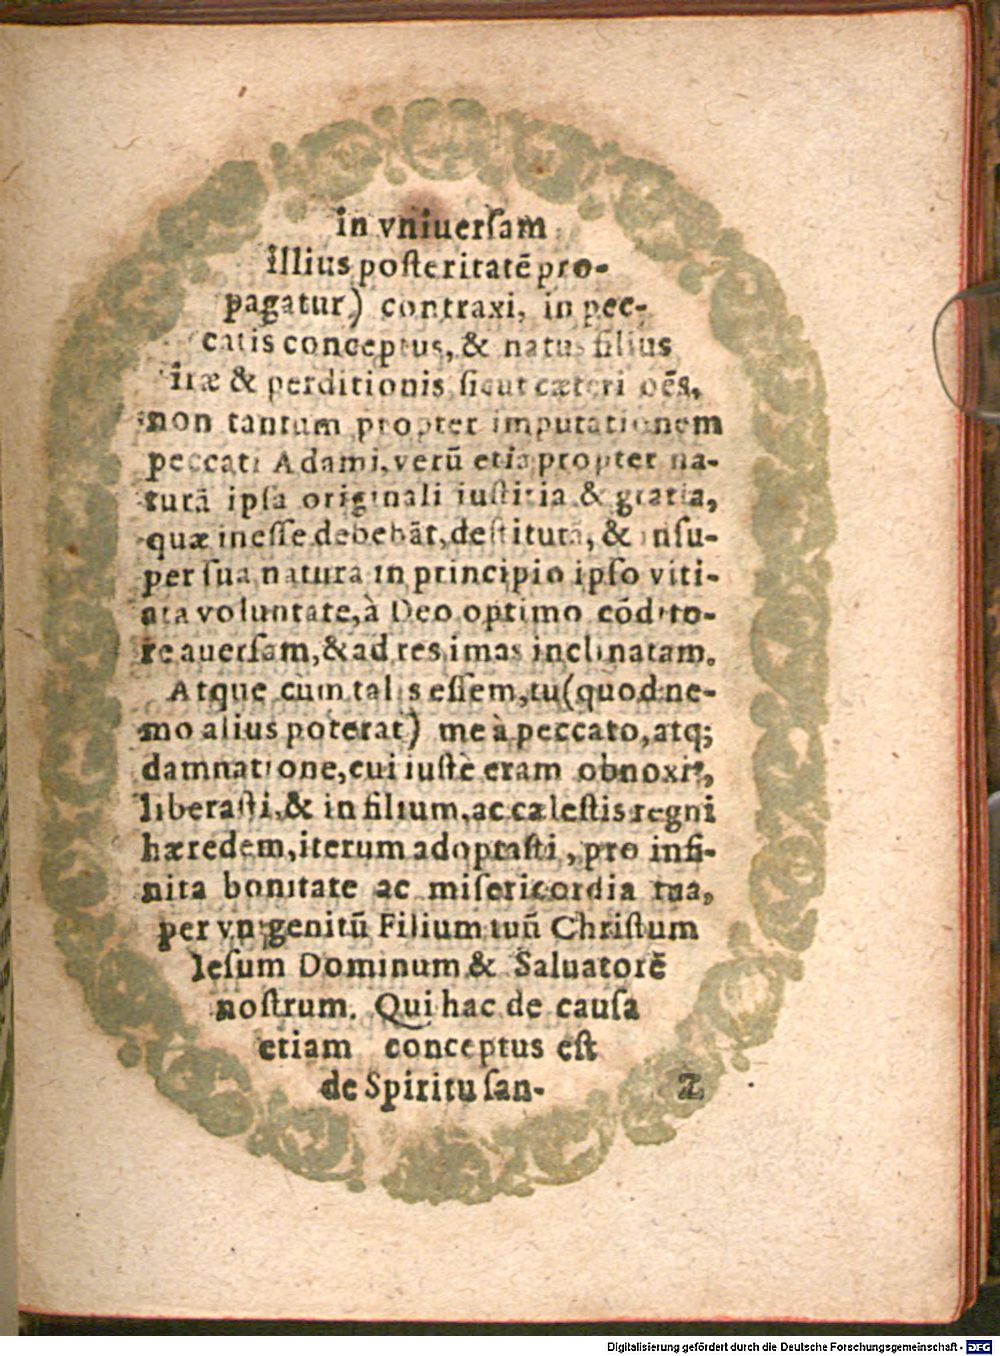 in vniuerſam
illius poſteritatē pro-
pagatur) contraxi, in pec-
catis conceptus, & natus filius
iræ & perditionis ſicut cæteri oēs,
non tantum propter imputationem
peccati Adami, verū etiā propter na-
turā ipſa originali iuſtitia & gratia,
quæ ineſſe debebāt, deſtitutā, & inſu-
per ſua natura in principio ipſo viti-
ata voluntate, à Deo optimo cōdito-
re auerſam, & ad res imas inclinatam.
Atque cùm talis eſſem, tu (quod ne-
mo alius poterat) me à peccato, atq;
damnatione, cui iuſtè eram obnoxiꝰ,
liberaſti, & in filium, ac cæleſtis regni
hæredem, iterum adoptaſti, pro infi-
nita bonitate ac miſericordia tua,
per vnigenitū Filium tuū Chriſtum
Ieſum Dominum & Saluatorē
noſtrum. Qui hac de cauſa
etiam conceptus eſt
de Spiritu ſan-
2
Digitalisierung gefördert durch die Deutsche Forschungsgemeinschaft - DFG